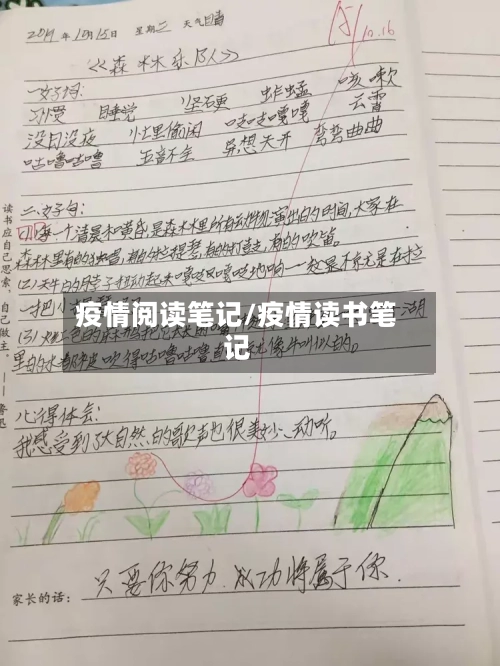 2019年10月15日 星期二 天气晴
10.16
《森林音乐人》
一、好词:
习惯 睡觉 坚硬 蚱蜢 咳嗽
没日没夜 忙里偷闲 吱吱嘎嘎 云霄
咕噜咕噜 五音不全 异想天开 弯弯曲曲
二、好句:
(1)每一个清晨和黄昏,是森林里所有动物演出的时间,大家在
森林里有的独唱,有的拉提琴,有的打鼓,有的吹笛。
(2)天牛的脖子扭动起来嘎吱嘎吱地响
一把小
疫情阅读笔记/疫情读书笔
记
(3)
湖
里的水都被吹得咕噜咕噜直
心得体会:
我感受到了大自然的歌声也很美妙、动听。
读书应自己思索,自己做主。——鲁迅
家长的话: 只要你努力,成功将属于你.